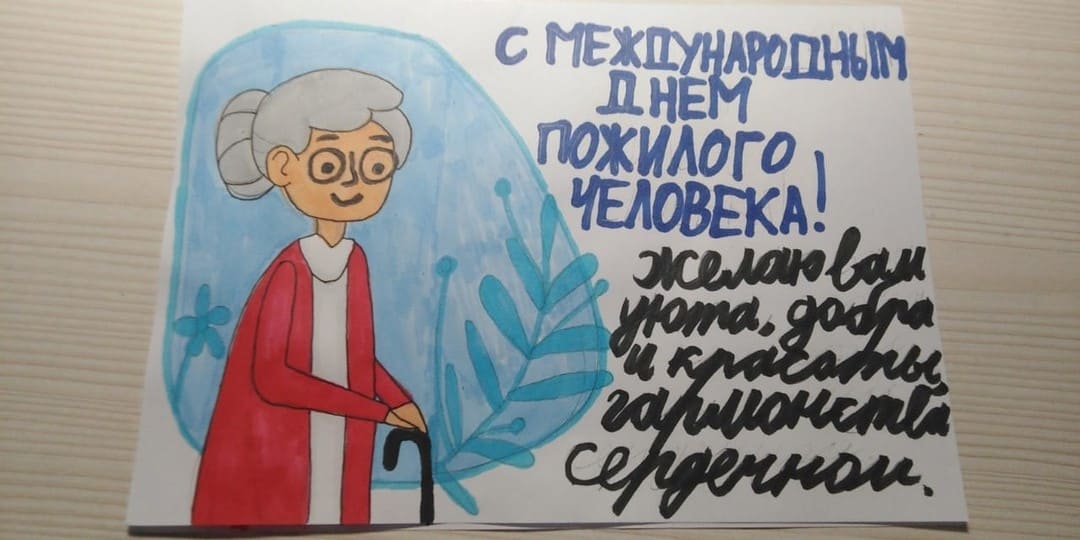 С МЕЖДУНАРОДНЫМ
ДНЕМ
ПОЖИЛОГО
ЧЕЛОВЕКА!
желаю вам
уюта, добра
и красоты,
гармонства
сердечной.